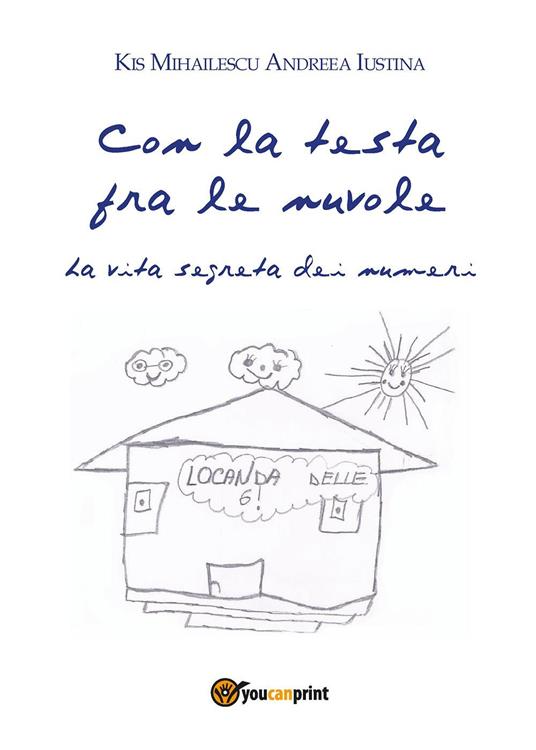 Kis Mihailescu Andreea Iustina
Con la testa
fra le nuvole
La vita segreta dei numeri
LOCANDA DELLE
6!
youcanprint